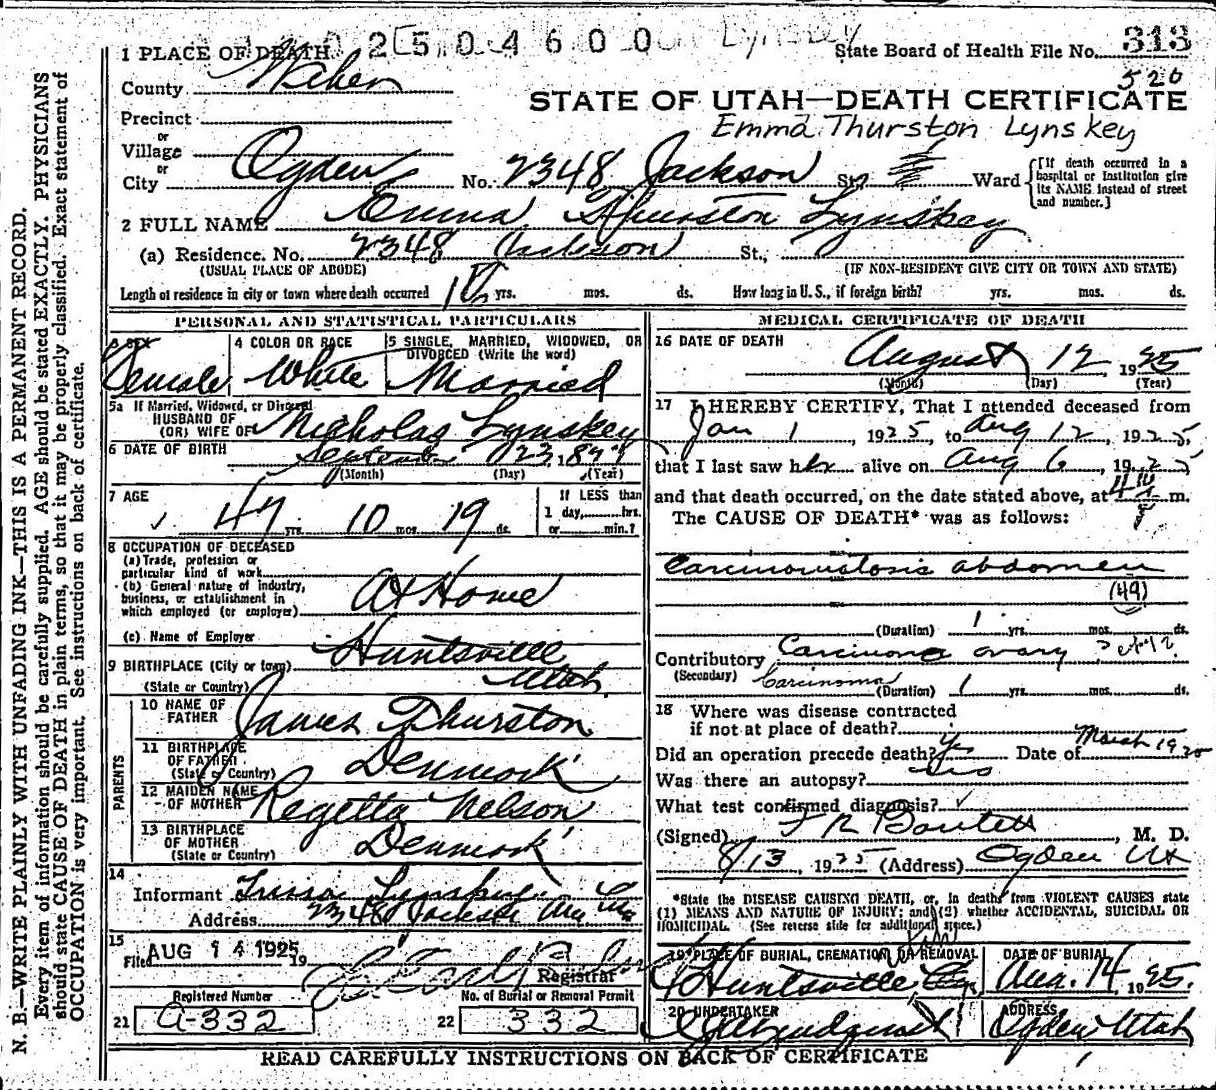 0 2 5 0 4 6 0 0 Lynskey
1 PLACE OF DEATH State Board of Health File No. 313
County Weber 520
STATE OF UTAH—DEATH CERTIFICATE
Precinct
Emma Thurston Lynskey
or
Village
or
City Ogden No. 2348 Jackson St. Ward
[If death occurred in a hospital or institution give its NAME instead of street and number.]
2 FULL NAME Emma Thurston Lynskey
(a) Residence. No. 2348 Jackson St.,
(USUAL PLACE OF ABODE) (IF NON-RESIDENT GIVE CITY OR TOWN AND STATE)
Length of residence in city or town where death occurred yrs. mos. ds. How long in U. S., if foreign birth? yrs. mos. ds.
PERSONAL AND STATISTICAL PARTICULARS
3 SEX 4 COLOR OR RACE 5 SINGLE, MARRIED, WIDOWED, OR
DIVORCED (Write the word)
Female White Married
5a If Married, Widowed, or Divorced
HUSBAND OF
(OR) WIFE OF Nicholas Lynskey
6 DATE OF BIRTH September 23, 1877
(Month) (Day) (Year)
7 AGE 47 yrs. 10 mos. 19 ds.
If LESS than
1 day, hrs.
or min.?
8 OCCUPATION OF DECEASED
(a) Trade, profession or
particular kind of work
(b) General nature of industry,
business, or establishment in
which employed (or employer) At Home
(c) Name of Employer
9 BIRTHPLACE (City or town) Huntsville
(State or Country) Utah
PARENTS
10 NAME OF
FATHER James Thurston
11 BIRTHPLACE
OF FATHER
(State or Country) Denmark
12 MAIDEN NAME
OF MOTHER Regetta Nelson
13 BIRTHPLACE
OF MOTHER
(State or Country) Denmark
14
Informant Lynskey
Address 2348 Jackson Ave
15
Filed AUG 14 1925 19
Registrar
Registered Number No. of Burial or Removal Permit
21 a-332 22 332
MEDICAL CERTIFICATE OF DEATH
16 DATE OF DEATH
August 12, 1925
(Month) (Day) (Year)
17 I HEREBY CERTIFY, That I attended deceased from
Jan 1, 1925, to Aug 12, 1925,
that I last saw her alive on Aug 6, 1925
and that death occurred, on the date stated above, at m.
The CAUSE OF DEATH* was as follows:
Carcinomatosis abdomen
(49)
(Duration) 1 yrs. mos. ds.
Contributory Carcinoma ovary
(Secondary) Carcinoma
(Duration) 1 yrs. mos. ds.
18 Where was disease contracted
if not at place of death?
Did an operation precede death? Yes Date of March 1925
Was there an autopsy? No
What test confirmed diagnosis? ✓
(Signed) F R Bartlett, M. D.
8/13, 1925 (Address) Ogden Ut
*State the DISEASE CAUSING DEATH, or, in deaths from VIOLENT CAUSES state
(1) MEANS AND NATURE OF INJURY; and (2) whether ACCIDENTAL, SUICIDAL OR
HOMICIDAL. (See reverse side for additional space.)
19 PLACE OF BURIAL, CREMATION OR REMOVAL DATE OF BURIAL
Huntsville Aug. 14, 1925.
20 UNDERTAKER ADDRESS
Ogden Utah
READ CAREFULLY INSTRUCTIONS ON BACK OF CERTIFICATE
N. B.—WRITE PLAINLY WITH UNFADING INK—THIS IS A PERMANENT RECORD.
Every item of information should be carefully supplied. AGE should be stated EXACTLY. PHYSICIANS
should state CAUSE OF DEATH in plain terms, so that it may be properly classified. Exact statement of
OCCUPATION is very important. See instructions on back of certificate.